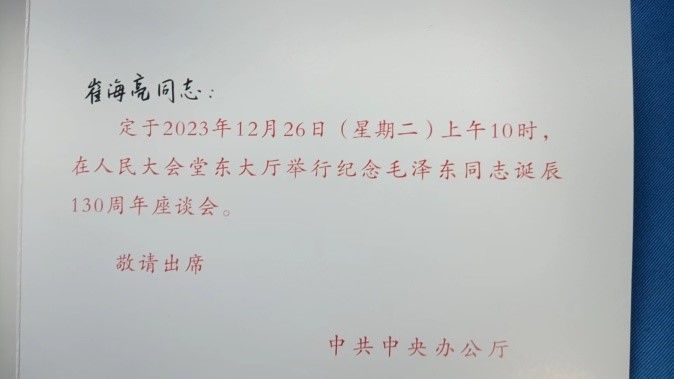 崔海亮同志：
定于2023年12月26日（星期二）上午10时，
在人民大会堂东大厅举行纪念毛泽东同志诞辰
130周年座谈会。
敬请出席
中共中央办公厅